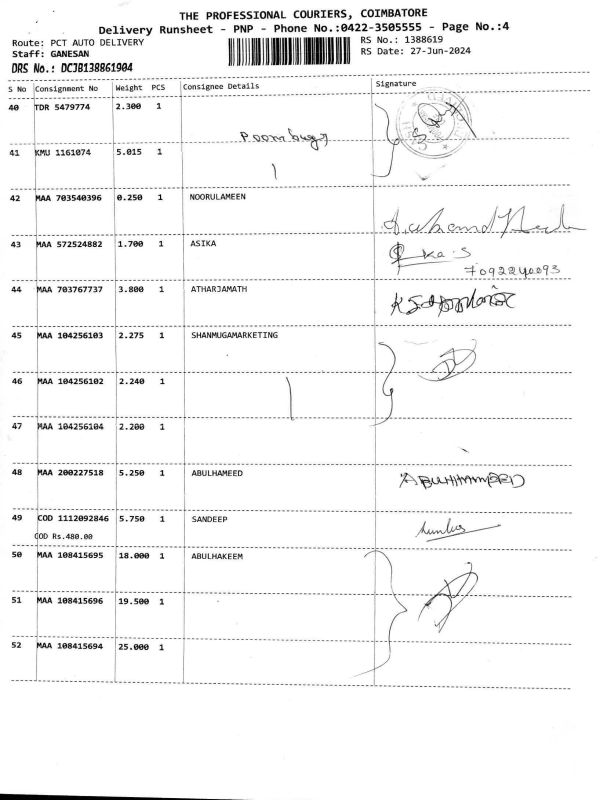 THE PROFESSIONAL COURIERS, COIMBATORE
Delivery Runsheet - PNP - Phone No.:0422-3505555 - Page No.:4
Route: PCT AUTO DELIVERY
RS No.: 1388619
Staff: GANESAN
RS Date: 27-Jun-2024
DRS No.: DCJB138861904
S No Consignment No Weight PCS Consignee Details Signature
40 TDR 5479774 2.300 1
41 KMU 1161074 5.015 1
42 MAA 703540396 0.250 1 NOORULAMEEN
43 MAA 572524882 1.700 1 ASIKA
7092240093
44 MAA 703767737 3.800 1 ATHARJAMATH
45 MAA 104256103 2.275 1 SHANMUGAMARKETING
46 MAA 104256102 2.240 1
47 MAA 104256104 2.200 1
48 MAA 200227518 5.250 1 ABULHAMEED ABULHAMEED
49 COD 1112092846 5.750 1 SANDEEP
COD Rs.480.00
50 MAA 108415695 18.000 1 ABULHAKEEM
51 MAA 108415696 19.500 1
52 MAA 108415694 25.000 1